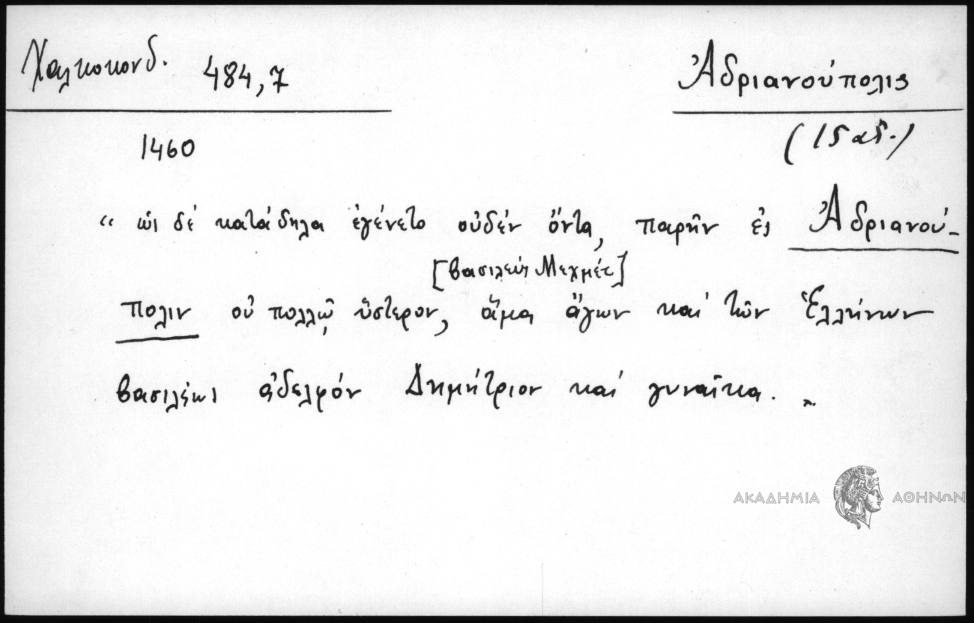 Χαλκοκονδ. 484,7
Ἀδριανούπολις
1460
(15 αἰ.)
“ ὡς δέ κατάδηλα ἐγένετο οὐδέν ὄντα, παρῆν ἐς Ἀδριανού-
[βασιλεύς Μεχμέτ]
πολιν οὐ πολλῷ ὕστερον, ἅμα ἄγων καί τῶν Ἑλλήνων
βασιλέως ἀδελφόν Δημήτριον καί γυναῖκα. „
ΑΚΑΔΗΜΙΑ ΑΘΗΝΩΝ